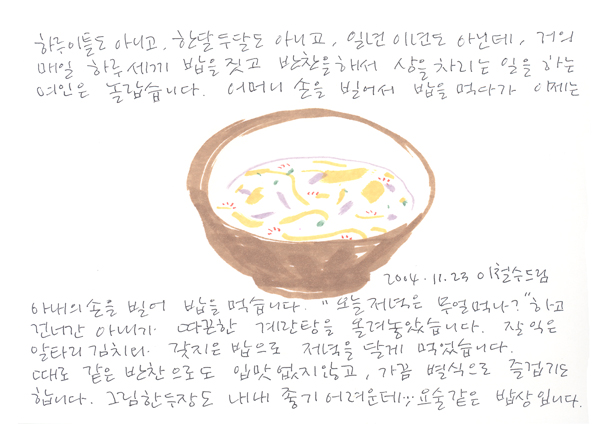 하루이틀도 아니고, 한달 두달도 아니고, 일년 이년도 아닌데, 거의
매일 하루 세끼 밥을 짓고 반찬을 해서 상을 차리는 일을 하는
여인은 놀랍습니다. 어머니 손을 빌어서 밥을 먹다가 이제는
2004.11.23 이철수드림
아내의 손을 빌어 밥을 먹습니다. "오늘 저녁은 무얼 먹나?" 하고
건너간 아내가 따끈한 계란탕을 올려놓았습니다. 잘 익은
알타리 김치와 갖지은 밥으로 저녁을 달게 먹었습니다.
때로 같은 반찬으로도 입맛 없지않고, 가끔 별식으로 즐겁기도
합니다. 그림 한두장도 내내 좋기 어려운데… 요술같은 밥상입니다.